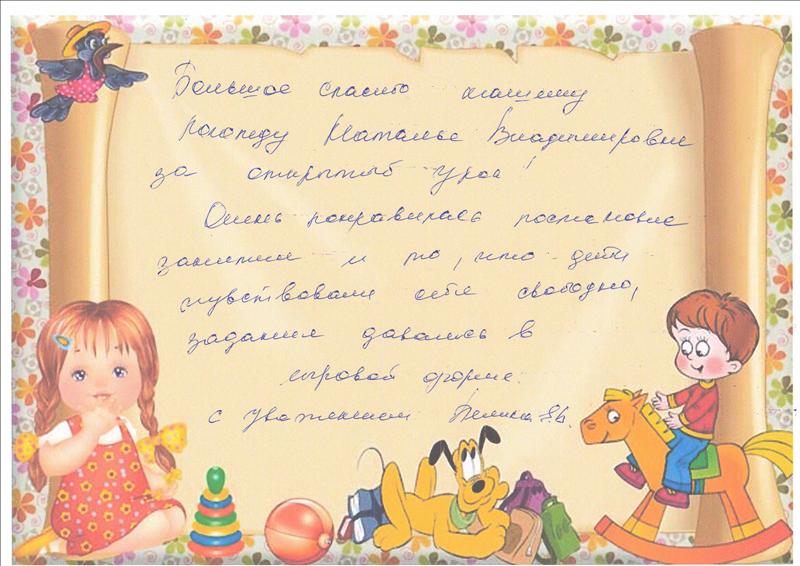 Большое спасибо нашему
логопеду Наталье Владимировне
за открытый урок!
Очень понравилась постановка
занятия и то, что дети
чувствовали себя свободно,
задания давались в
игровой форме.
с уважением